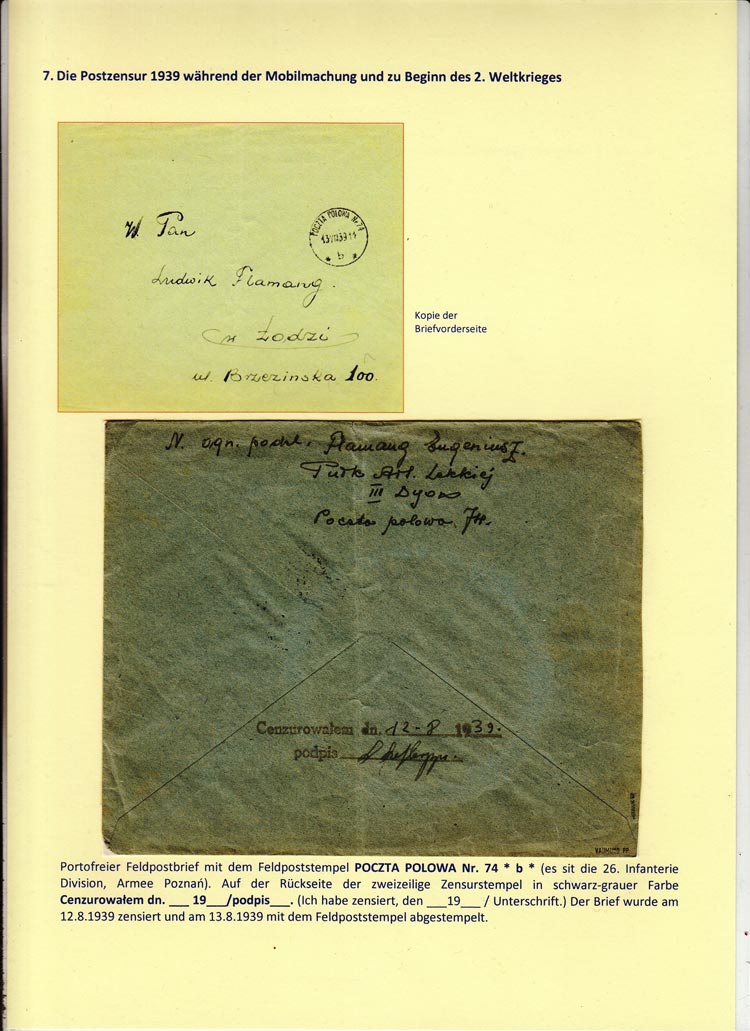 7. Die Postzensur 1939 während der Mobilmachung und zu Beginn des 2. Weltkrieges
W. Pan
POCZTA POLOWA Nr 74
13VIII39-11
* b *
Ludwik Flamang.
w Łodzi
ul. Brzezinska 100.
Kopie der
Briefvorderseite
N. ogn. podch. Flamang Eugeniusz.
Pułk Art. Lekkiej
III Dyon
Poczta polowa 74.
Cenzurowałem dn. 12-8 1939.
podpis
Portofreier Feldpostbrief mit dem Feldpoststempel POCZTA POLOWA Nr. 74 * b * (es sit die 26. Infanterie
Division, Armee Poznań). Auf der Rückseite der zweizeilige Zensurstempel in schwarz-grauer Farbe
Cenzurowałem dn. ___ 19___/podpis___. (Ich habe zensiert, den ___19___ / Unterschrift.) Der Brief wurde am
12.8.1939 zensiert und am 13.8.1939 mit dem Feldpoststempel abgestempelt.